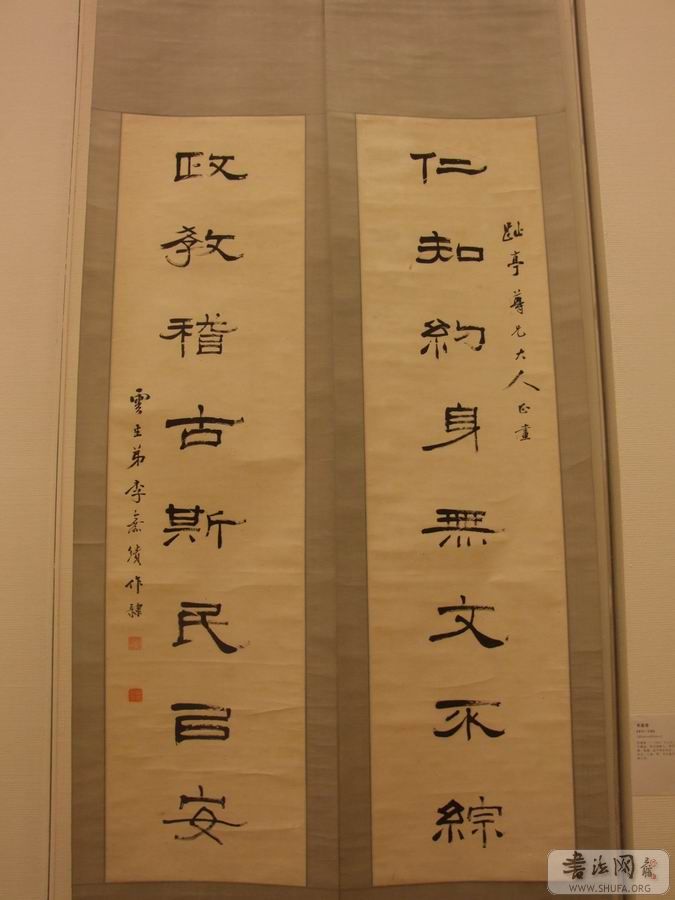 仁知約身無文不綜
亭尊兄大人正
政教稽古斯民㠯安
雲生弟李嘉績作隸
书法网
WWW.SHUFA.ORG